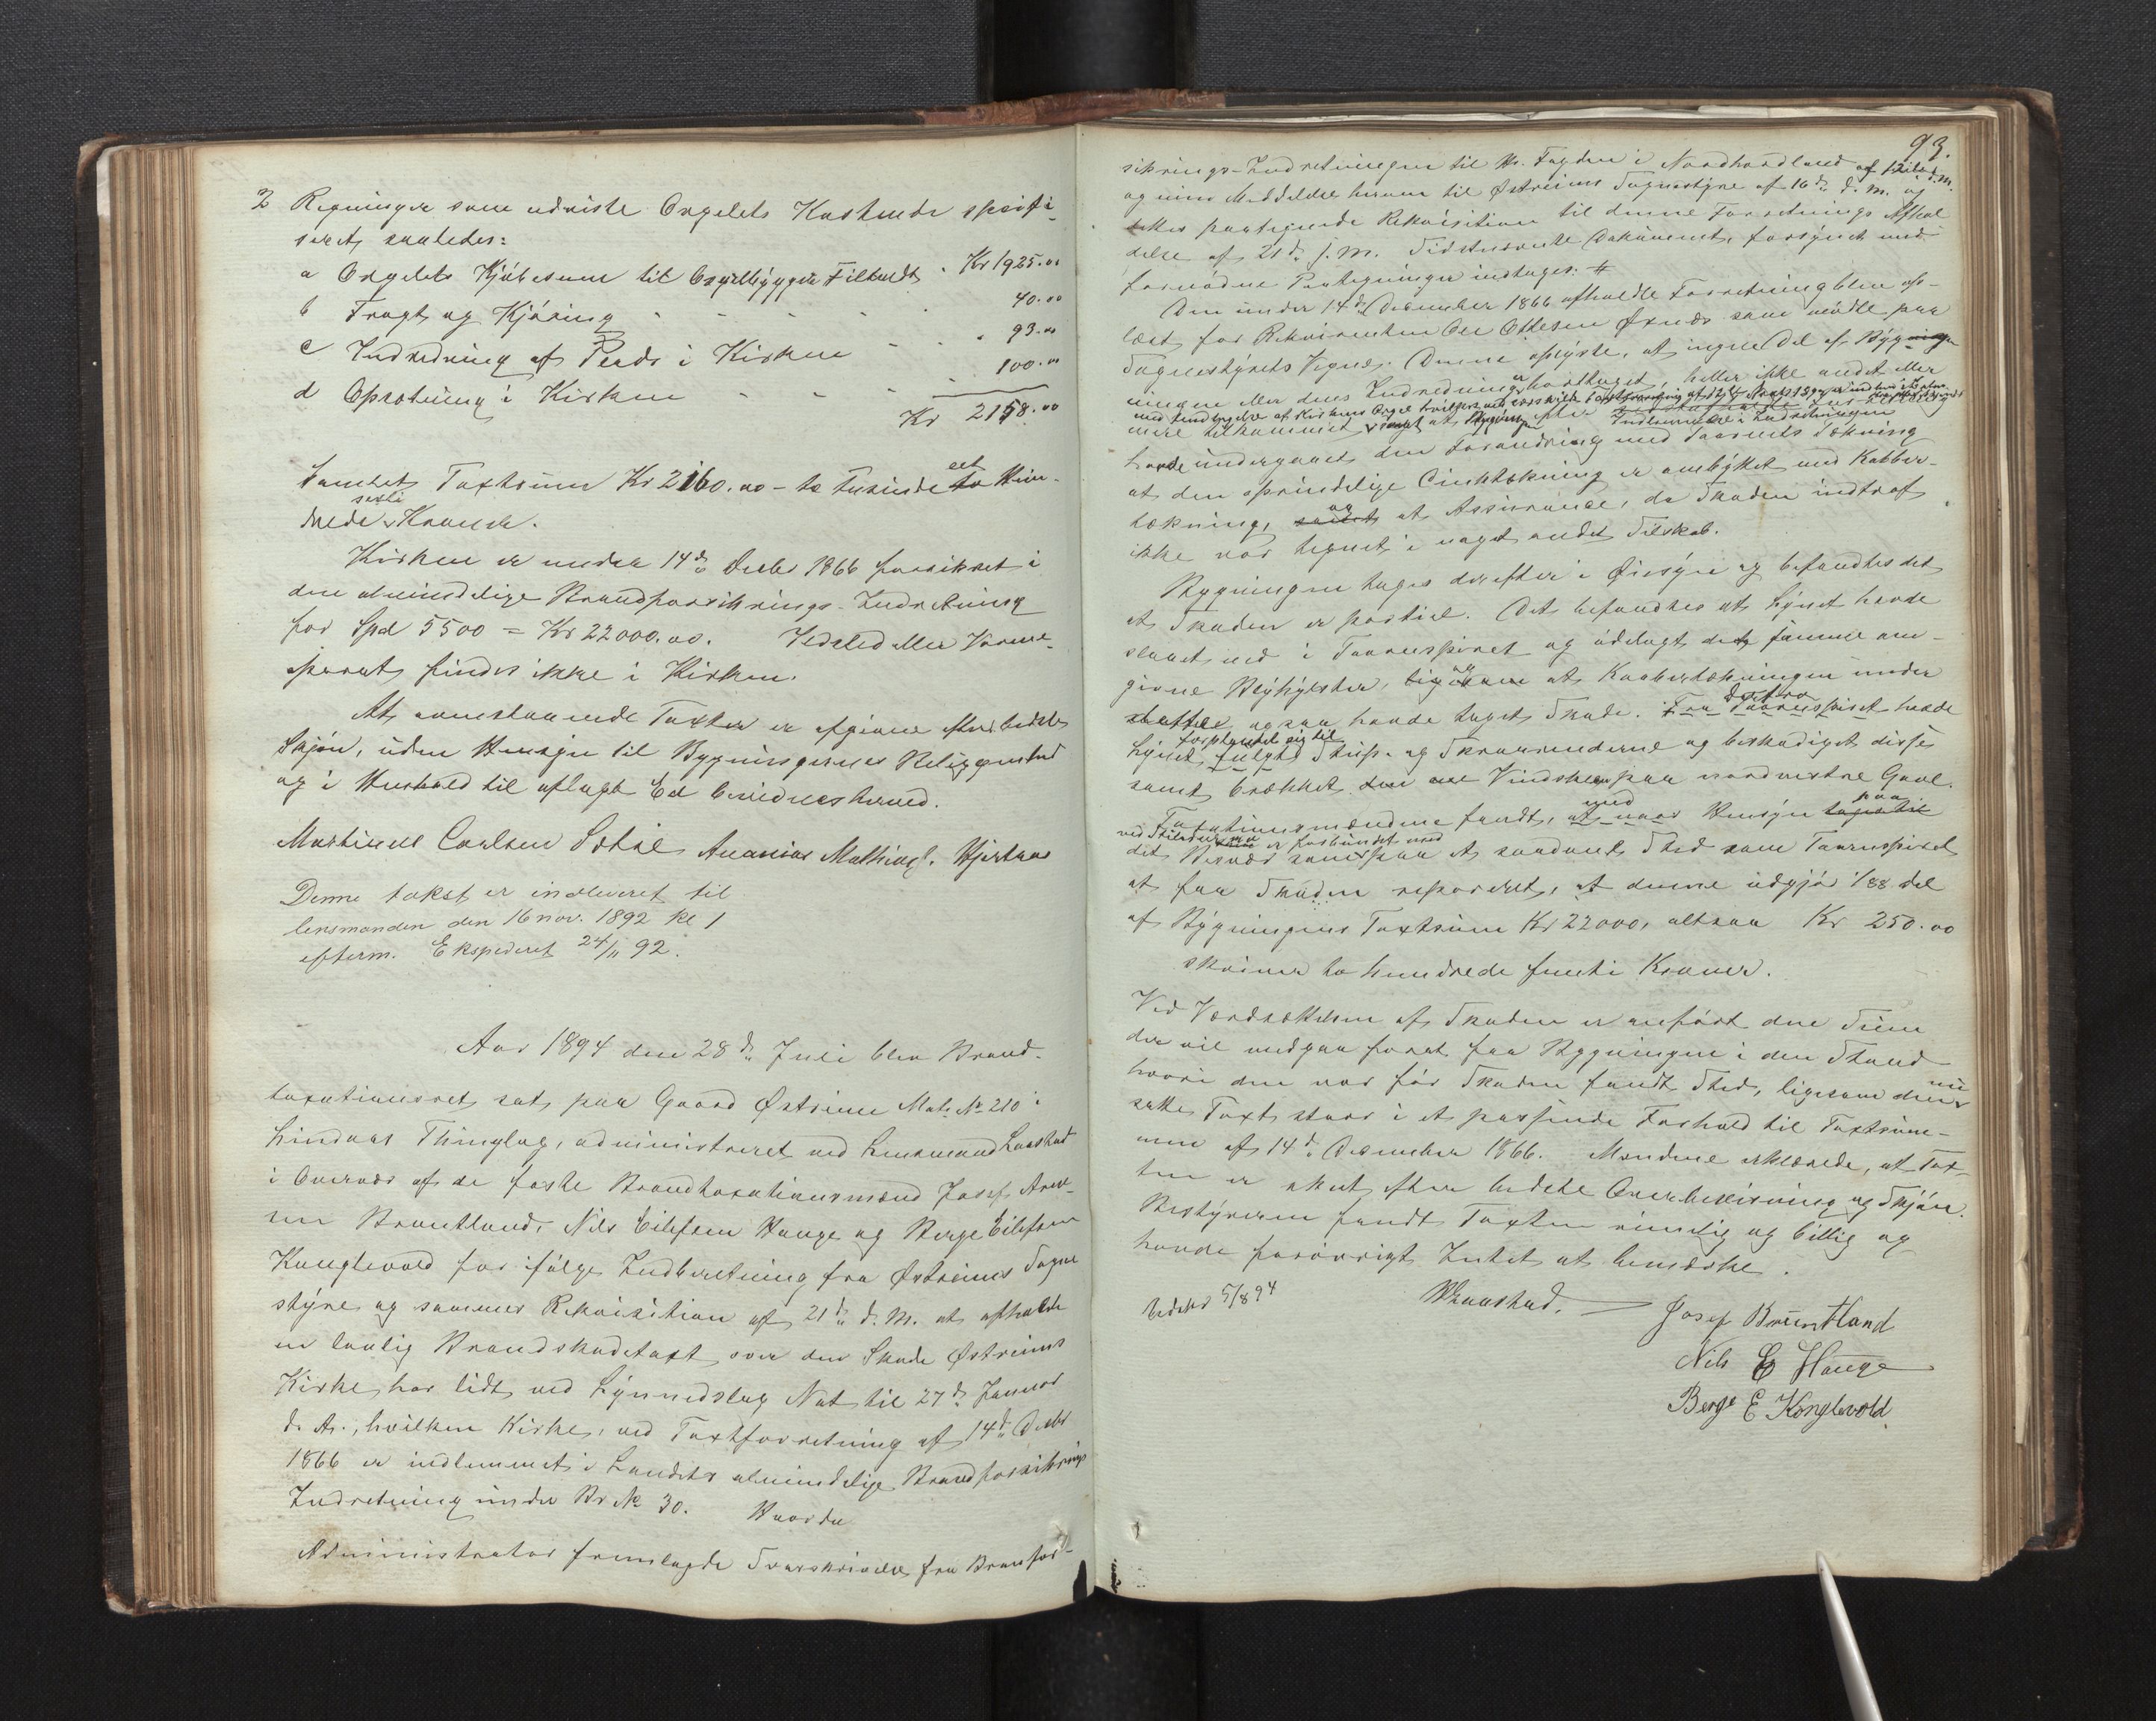 2 Regninger som udviste Orgelets Kostende specifi-
seret saaledes:
a Orgelets Kjøbesum til Orgelbygger Kr 1925.00
b Fragt og Kjøring - - - - 40.00
c Indredning af Plads i Kirken - - 93.00
d Opsætning i Kirken - - - 100.00
Kr 2158.00
Samlet Taxtsum Kr 2160.00 - to tusinde et Hun-
drede sexti Kroner.
Kirken er under 14de Decbr 1866 forsikret i
den almindelige Brandforsikrings-Indretning
for Spd 5500 = Kr 22000.00. Ildsted eller Varme-
aparat findes ikke i Kirken.
At ovenstaaende Taxter er afgivne efter bedste
Skjøn, uden Hensyn til Bygningernes Beliggenhed
og i Henhold til aflagt Ed bevidnes herved.
Martinus Carlsen Ananias Mathias. Hjertaas
Denne takst er indleveret til
lensmanden den 16 nov. 1892 kl 1
efterm. Ekspederet 24/11 92.
Aar 1894 den 28de Juli blev Brand-
taxationsret sat paa Gaard Østreim Matr. No 210 i
Lindaas Thinglag, administreret ved Lensmand
i Overvær af de faste Brandtaxationsmænd Josef
Bruntland, Nils Eilefsen Hauge og Berge Eilefsen
Konglevold for ifølge Indberetning fra Østreims Sogne-
styre og sammes Rekvisition af 21de d. M. at afholde
en lovlig Brandskadetaxt over den Skade Østreims
Kirke har lidt ved Lynnedslag Nat til 27de Januar
d. A., hvilken Kirke, ved Taxtforretning af 14de Decbr
1866 er indlemmet i Landets almindelige Brandforsikrings
Indretning under Br No 30. Hvorda
Administrator fremlagde Svarskrivelse fra Branfor-
93.
sikrings-Indretningen til Hr. Fogden i Nordhordland af
og min Meddelelse herom til Østreims Sognestyre af 16de d. M. og
dettes paategnede Rekvisition til denne Forretnings Afhol
delse af 21de s. M. Sidstnævnte Dokument, forsynet med
fornødne Paategninger indtages: #
Den under 14de December 1866 afholdte Forretning blev op-
læst for Rekvirenten Ole Ottesen som mødte paa
Sognestyrets Vegne. Denne oplyste, at ingen Del af Bygnin
ningen eller dens Indredning er borttaget, heller ikke andet eller
mere tilkommet
havde undergaaet den Forandring med Taarnets Tækning
at den oprindelige Cinktækning er ombyttet med Kobber-
tækning, og at Assurance, da Skaden indtraf
ikke var tegnet i noget andet Selskab.
Bygningen toges derefter i Øiesyn og befandtes det
at Skaden er partiel. Det befandtes at Lynet havde
slaaet ned i Taarnspiret og ødelagt det samme om-
givne Blyhylster, og at Kobbertækningen under
ogsaa havde taget Skade. Derfra havde
Lynet forplantet sig til og og beskadiget disse
samt brækket Vindskeen paa nordvestre Gavl.
Taxationsmændene fandt, med Hensyn paa
det Besvær som er forbundet med paa et saadant Sted som Taarnspiret
at faa Skaden repareret, at denne udgjør 1/88 del
af Bygningens Taxtsum Kr 22000, altsaa Kr 250.00
skriver to hundrede femti Kroner.
Ved Værdsættelsen af Skaden er anført den Sum
der vil medgaa forat faa Bygningen i den Stand
hvori den var før Skaden fandt Sted, ligesom den nu
satte Taxt staar i et passende Forhold til Taxtsum-
men af 14de December 1866. Mændene erklærede, at Tax-
ten er sket efter bedste Overbevisning og Skjøn.
Bestyreren fandt Taxten rimelig og billig og
havde forøvrigt Intet at bemærke.
Udstedt 5/8 94
Josef Bruntland
Nils E Hauge
Berge E Konglevold